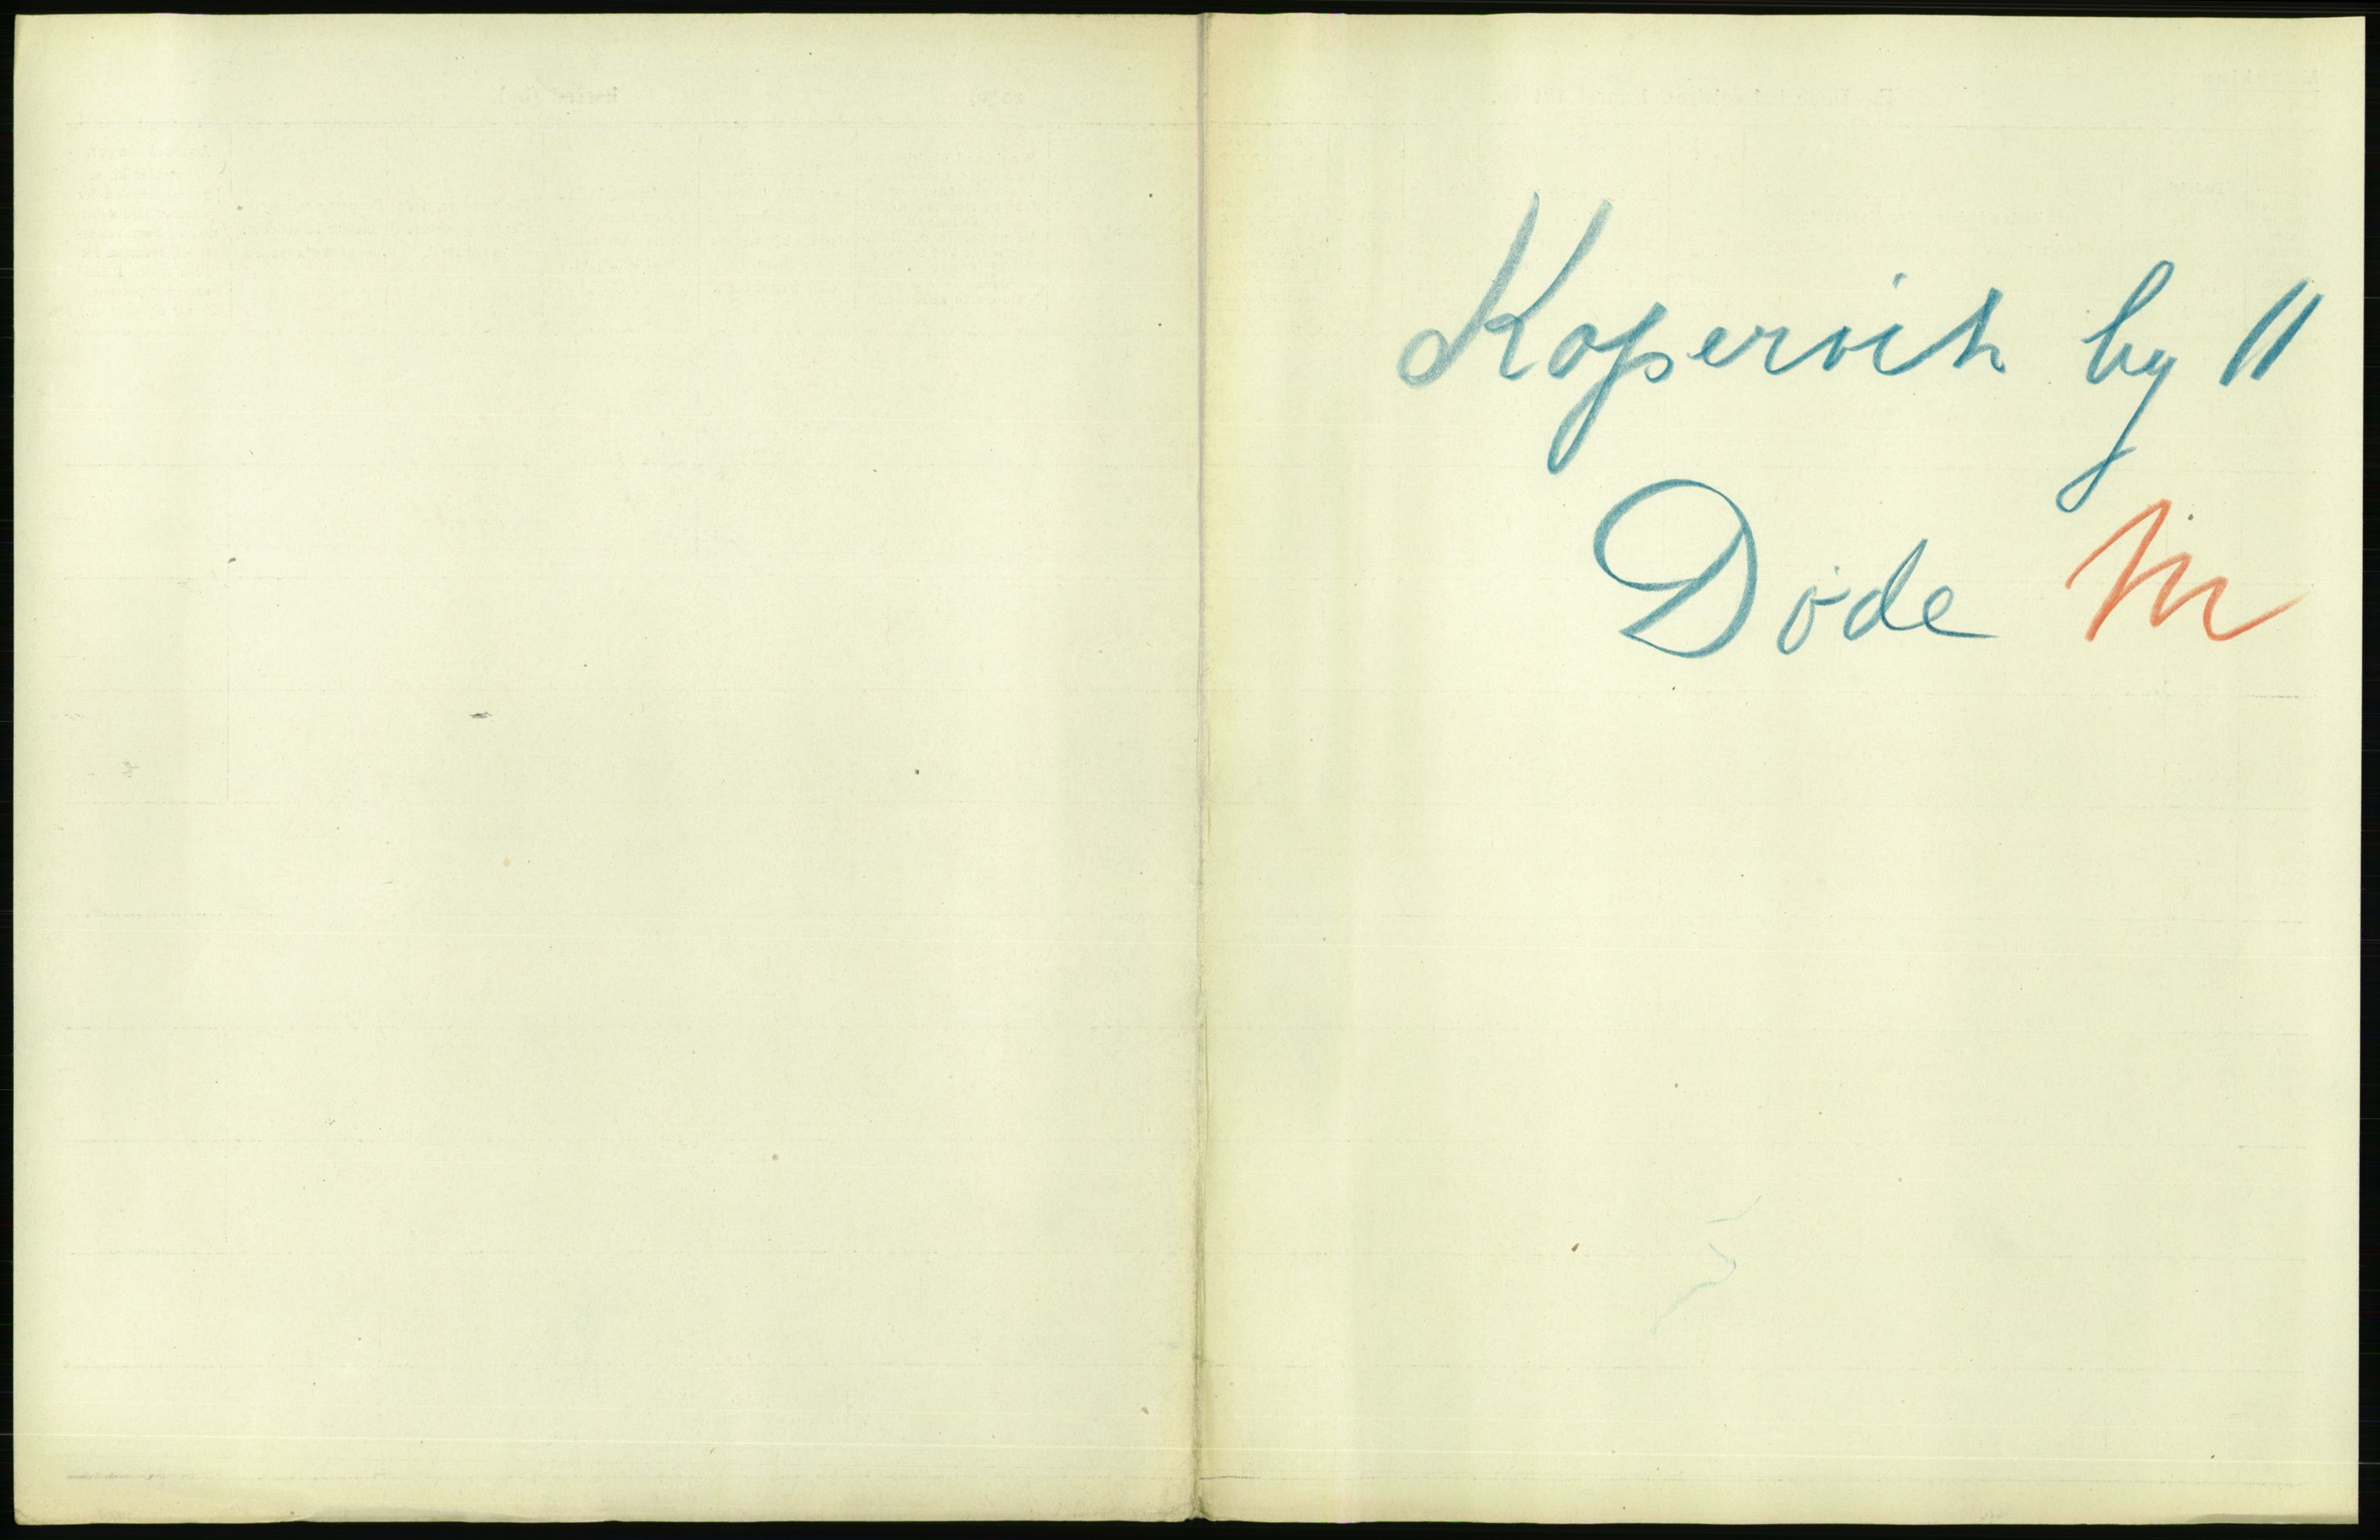 Kopervik by 11
Døde M